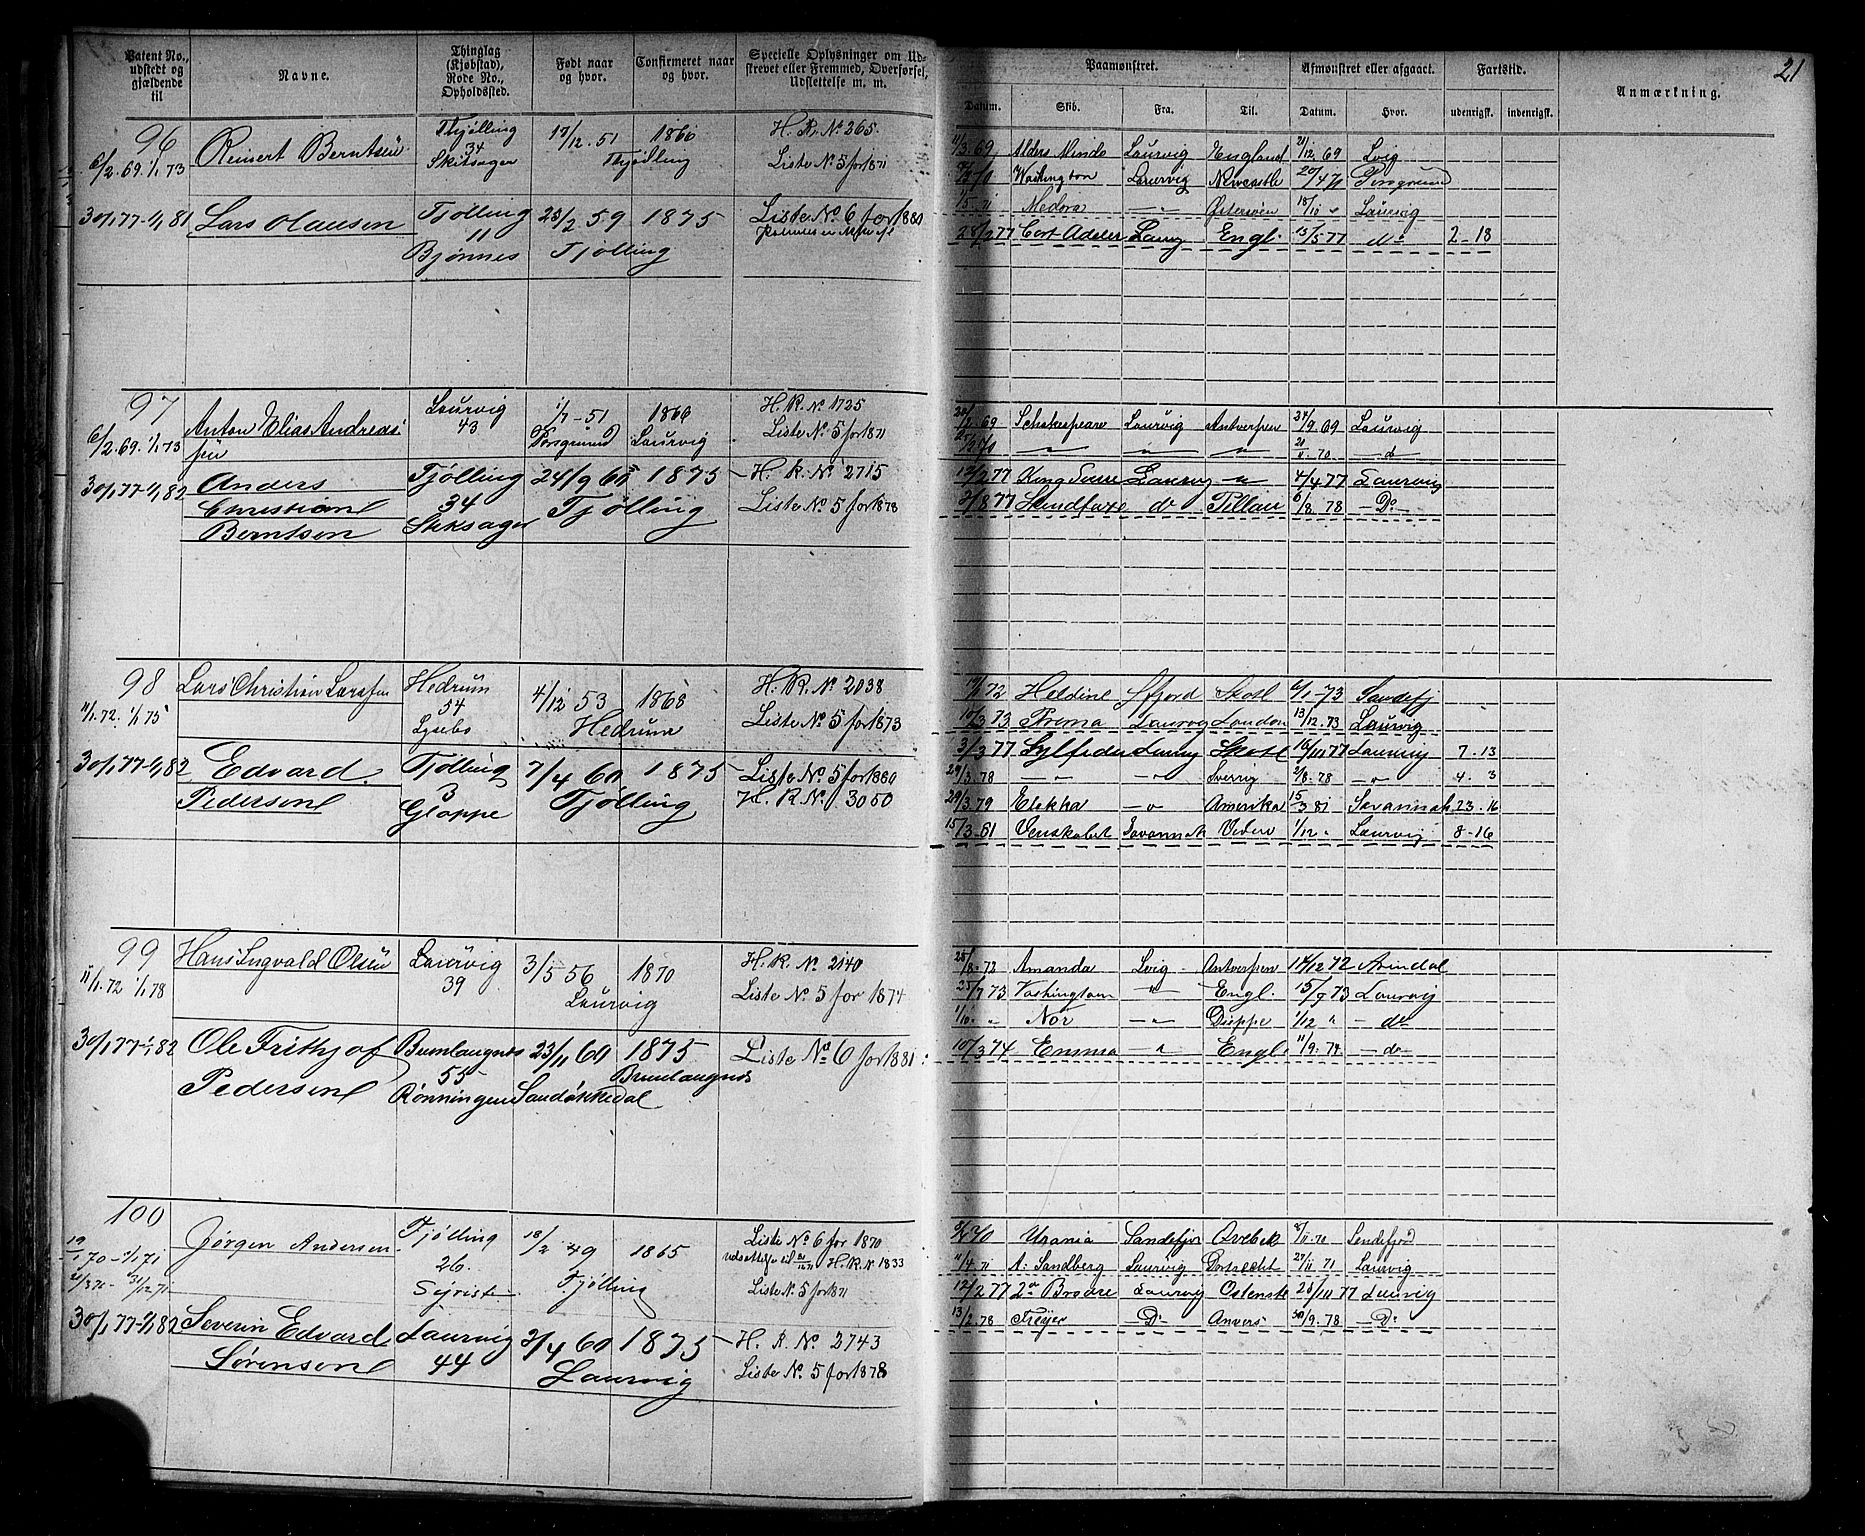 21
Patent No., udstedt og gjældende til
Navne.
Thinglag (Kjøbstad), Rode No., Opholdssted.
Født naar og hvor.
Confirmeret naar og hvor.
Specielle Oplysninger om Udstrevet eller Fremmed, Overførsel, Udslettelse m. m.
Paamønstret.
Afmønstret eller afgaaet.
Fartstid.
Anmærkning.
Datum. Skib. Fra. Til. Datum. Hvor. udenrigsk. indenrigsk.
96 Reinert Berntsen Thjølling 17/12.51 1866 H. R. No 265.
6/2.69. 1/1 73 34 Skitsager Thjølling Liste No 5 for 1871
30/1 77-1/1 81 Lars Olausen Tjølling 11 Bjønnes 25/2 59 Tjølling 1875 Liste No 6 for 1880
11/3.69 Alders Minde Laurvig England 21/12 69 Lvig
Washington Laurvig Newcastle 20/4 70
Medora —"— Østersøen 18/10 " Laurvig
28/2 77 Cort Adeler Laurv Engl. 13/5 77 do 2-18
97 Anton Elias Andreas- Laurvig 1/7-51 1866 H. R. No 1725
6/2.69. 1/1 73 sen 43 Porsgrund Laurvig Liste No 5 for 1871
30/1 77-1/1 82 Anders Tjølling 24/9 60 1875 H. R. No 2715
Christian 34 Tjølling Liste No 5 for 1878
Berntsen Skisager
Schakespeare Laurvig Antverpen 24/9.69 Laurvig
—"— " —"— 21/11.70 —d
12/2 77 Kong Sverre Laurvig —"— 4/4 77 Laurvig
2/8 77 Skindfaxe do Pillau 6/8.78 —Do—
98 Lars Christian Larsen Hedrum 4/12 53 1868 H. R. No 2038
11/1.72. 1/1 75 54 Lysebo Hedrum Liste No 5 for 1873
30/1 77-1/1 82 Edvard Tjølling 7/4 60 1875 Liste No 5 for 1880
Pedersen 3 Gloppe Tjølling H. R. No 3050
Heldine Sfjord Skotl 6/1-73 Sandefj
10/3 73 Prema Laurvg London 13/12.73 Laurvig
3/3 77 Sylfiden Laurv Skotl 16/11 77 Laurvig 7.13
29/3.78 —"— —"— Sverrig 2/8.78 —"— 4.3
29/3.79 Elekka —"— Amerika 15/3 81 Savannah 23.16
15/3-81 Venskabet Savannah 1/12 " Laurvig 8-16
99 Hans Ingvald Olsen Laurvig 3/5 56 1870 H. R. No 2140
11/1.72 1/1 78 39 Laurvig Liste No 5 for 1874
30/1 77-1/1 82 Ole Frithjof Brunlaugnes 23/11 60 1875 Liste No 6 for 1881
Pedersen 55 Rønningen Sandøkkedal Brunlaugnes
25/8.72 Amanda Lvig Antverpen 14/12 72 Arendal
25/7 73 Vashington " Engl. 15/9 73 Laurvig
1/10 " Nor —"— Dieppe 1/12 " —do
10/3 74 Emma " Engl. 11/9.74 —do—
100 Jørgen Andersen Tjølling 18/2 49 1865 Liste No 6 for 1870
19/1 70-1/1 71 26. Tjølling udsættelse til H. R. No 1833
21/3 71- 31/12 71 Liste No 5 for 1871
30/1 77-1/1 82 Severin Edvard Laurvig 2/4 60 1875 H. R. No 2743
Sørensen 44 Laurvig Liste No 5 for 1878
Urania Sandefjor 8/11.70 Sandefjord
11/4.71 A: Sandberg Laurvig Dortrecht 27/11 71 Laurvig
12/2 77 2de Brødre Laurvig Ostende 26/10 77 Laurvig
13/2.78 Frøyer —Do— Anvers 30/9.78 —Do